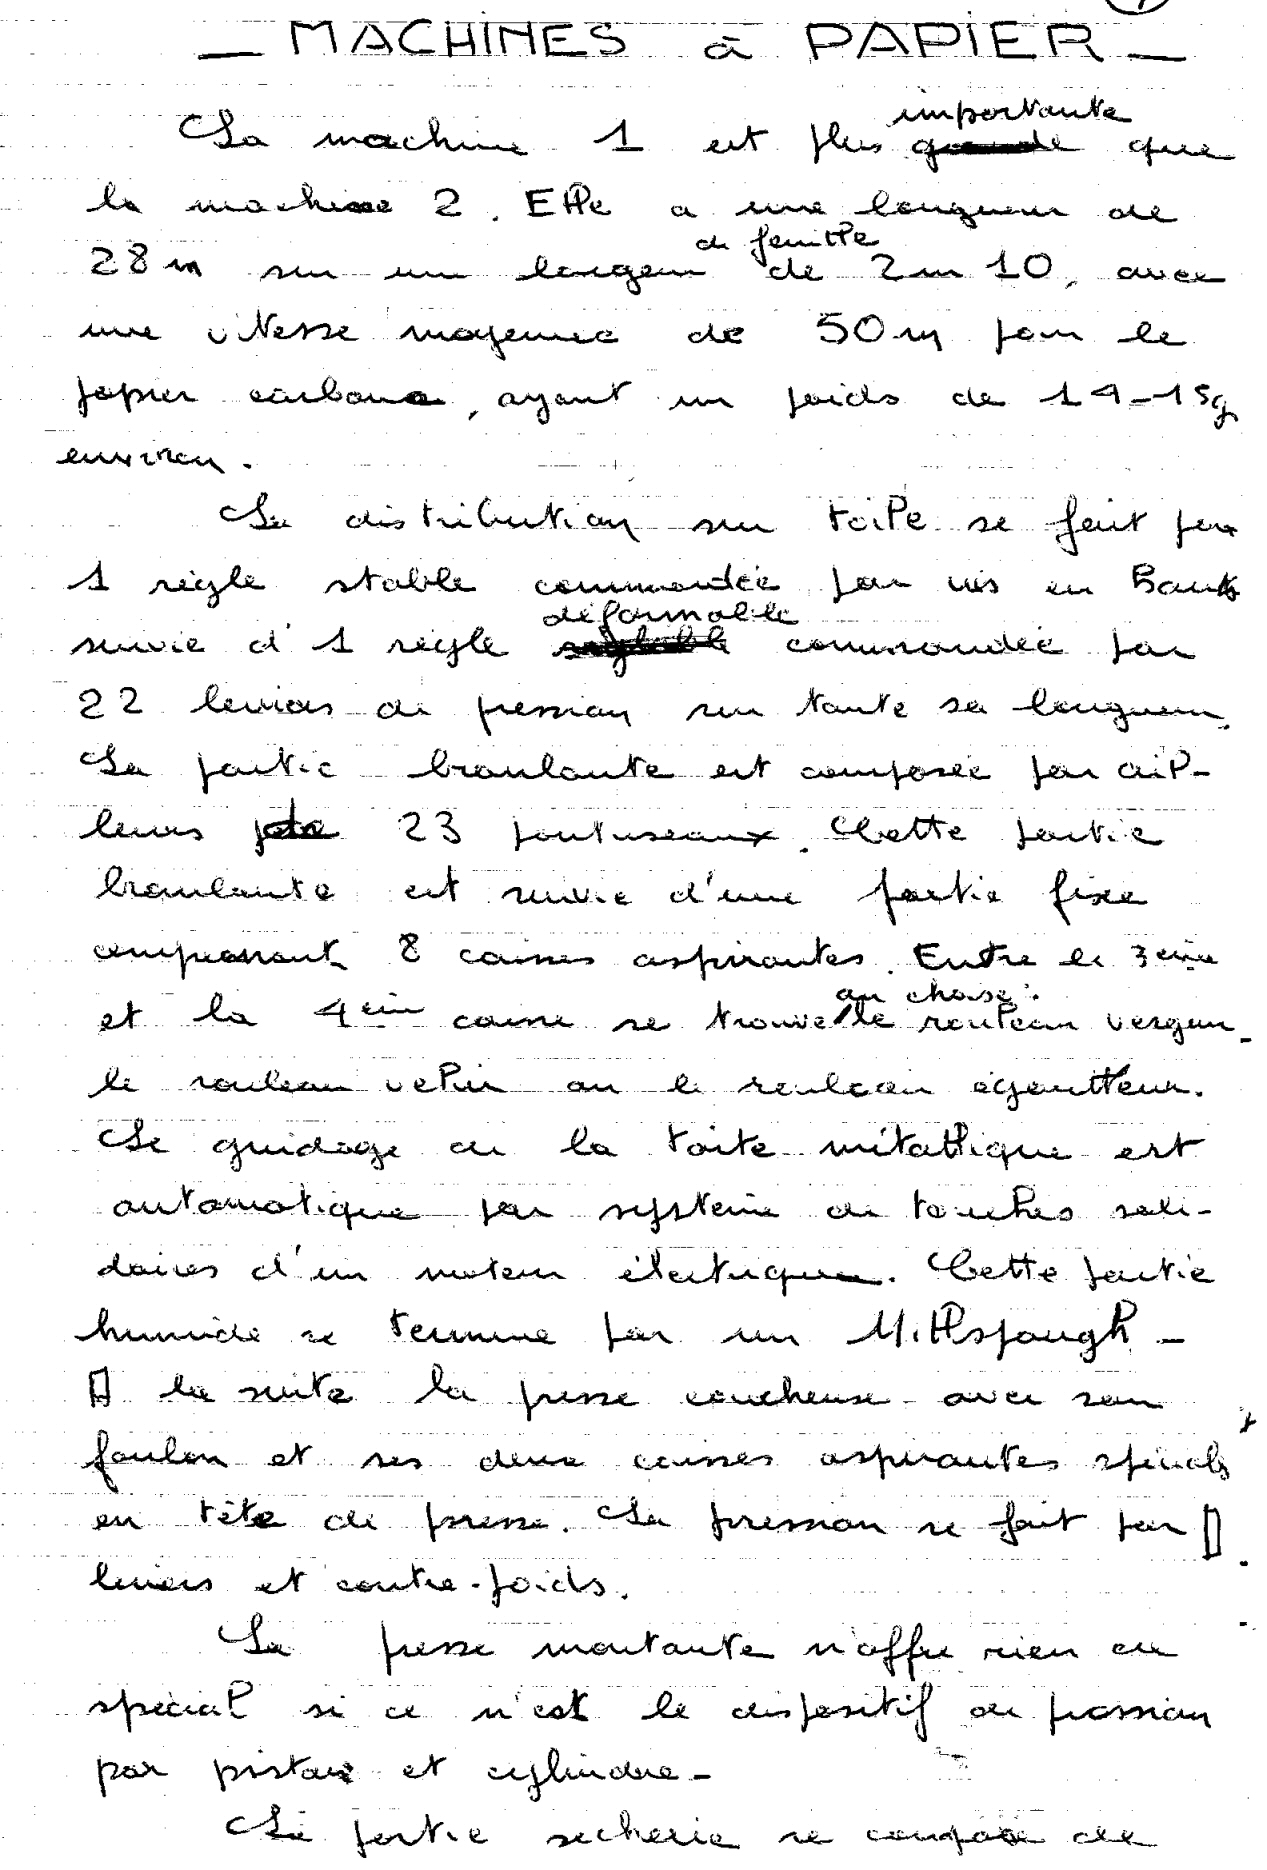 - MACHINES à PAPIER -
La machine 1 est plus importante que
la machine 2. Elle a une longueur de
28m sur un largeur de feuille de 2m10, avec
une vitesse moyenne de 50m pour le
papier carbone, ayant un poids de 14-15g
environ.
La distribution sur toile se fait par
1 règle stable commandée par vis en Bout
suivie d'1 règle déformable commandée par
22 leviers de pression sur toute sa longueur.
La partie branlante est composée par ail-
leurs de 23 pontuseaux. Cette partie
branlante est suivie d'une partie fixe
comprenant 8 caisses aspirantes. Entre la 3eme
et la 4eme caisse se trouve au choix: le rouleau vergeur
le rouleau velin ou le rouleau égoutteur.
Le guidage de la toile métallique est
automatique par système de touches soli-
daires d'un moteur électrique. Cette partie
humide se termine par un Millspaugh -
A la suite la presse coucheuse avec son
foulon et ses deux caisses aspirantes spéciales
en tête de presse. La pression se fait par
leviers et contre-poids.
La presse montante n'offre rien de
spécial si ce n'est le dispositif de pression
par piston et cylindre -
La partie sécherie se compose de